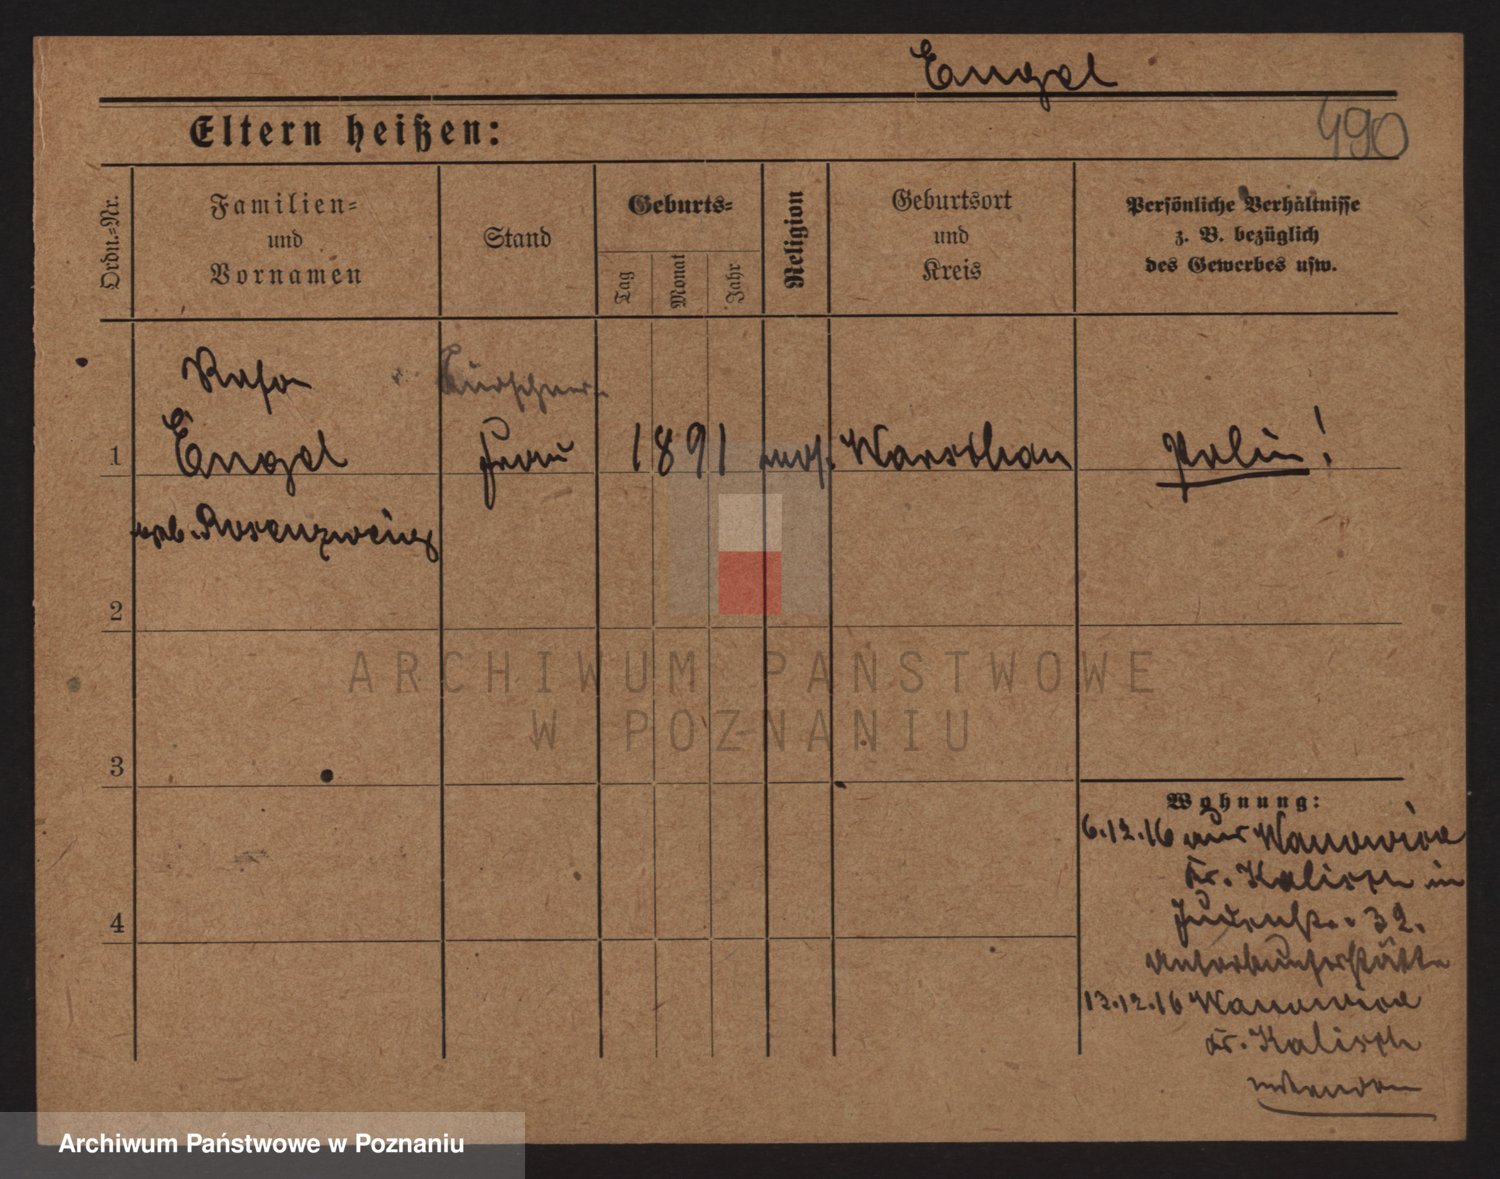 Engel
490
Eltern heißen:
Ordn.=Nr.
Familien=
und
Vornamen
Stand
Geburts=
Tag
Monat
Jahr
Religion
Geburtsort
und
Kreis
Persönliche Verhältnisse
z. B. bezüglich
des Gewerbes usw.
Rosa
Kürschner
1
Engel
Frau
1891
mos.
Warschau
Polin!
geb. Rosenzweig
2
3
4
Wohnung:
6.12.16 aus
Kr. Kalisch in
Judenstr. 32.
13.12.16
Kr. Kalisch
ARCHIWUM PAŃSTWOWE
W POZNANIU
Archiwum Państwowe w Poznaniu